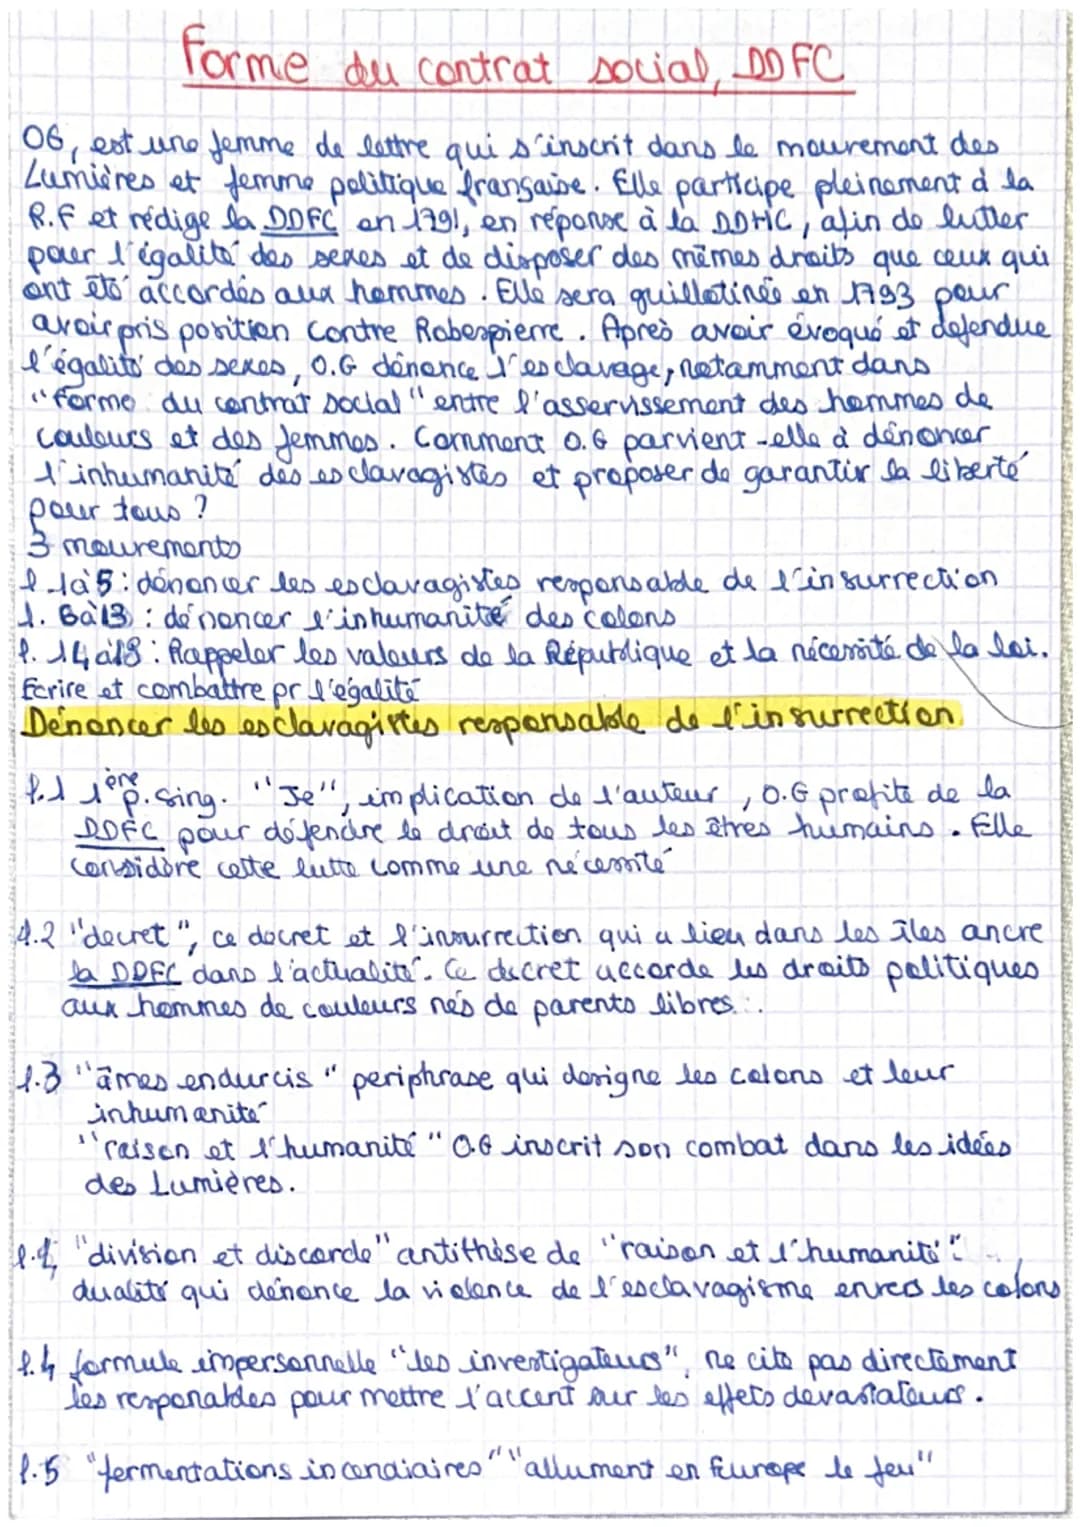 Forme du contrat social, DDFC
OG, est une femme de lettre qui s'inscrit dans le mouvement des
Lumières et femme politique française. Elle participe pleinement à la
R.F et rédige la DDFC en 1791, en réponse à la DDHC, afin de lutter
pour l'égalité des sexes et de disposer des mêmes droits que ceux qui
ont été accordés aux hommes. Elle sera guillotinée en 1793 pour
avoir pris position contre Robespierre. Après avoir évoqué et défendue
l'égalité des sexes, O.G dénonce l'esclavage, notamment dans
"forme du contrat social" entre l'asservissement des hommes de
couleurs et des femmes. Comment O.G parvient-elle à dénoncer
l'inhumanité des esclavagistes et proposer de garantir la liberté
pour tous ?
3 mouvements
l 1à5 : dénoncer les esclavagistes responsable de l'insurrection
l. 6à13 : dénoncer l'inhumanité des colons
l. 14à18 : Rappeler les valeurs de la République et la nécessité de la loi.
Ecrire et combattre pr l'égalité
Dénoncer les esclavagistes responsable de l'insurrection
l.1 1ère p. sing. "Je", implication de l'auteur, O.G profite de la
DDFC pour défendre le droit de tous les êtres humains. Elle
considère cette lutte comme une nécessité
l.2 "decret", ce decret et l'insurrection qui a lieu dans les îles ancre
la DDFC dans l'actualité. Ce decret accorde les droits politiques
aux hommes de couleurs nés de parents libres.
l.3 "âmes endurcis" periphrase qui designe les colons et leur
inhumanité
"raison et l'humanité" O.G inscrit son combat dans les idées
des Lumières.
l.4 "division et discorde" antithèse de "raison et l'humanité".
dualité qui dénonce la violence de l'esclavagisme envers les colons
l.4 formule impersonnelle "les investigateurs", ne cite pas directement
les responables pour mettre l'accent sur les effets devastateurs.
l.5 "fermentations incendiaires" "allument en Europe le feu"